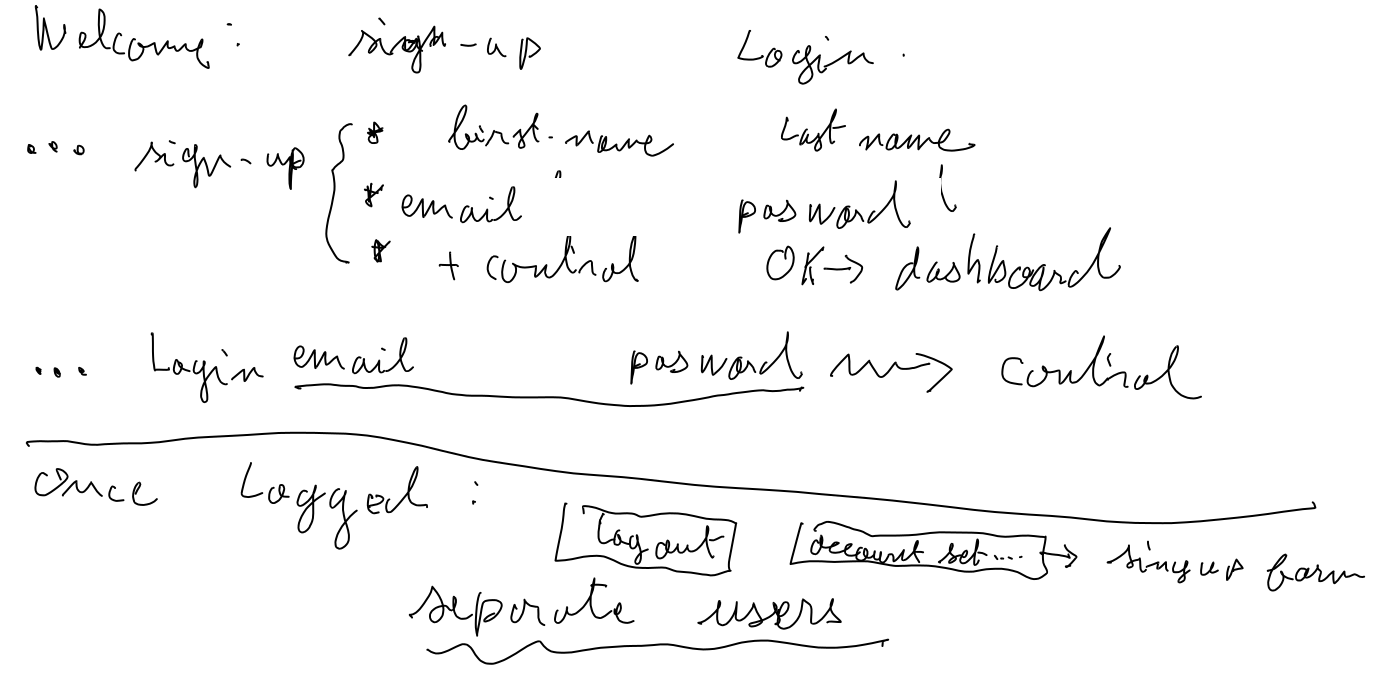 Welcome: sign-up Login.
... sign-up { * first-name Last name
* email pasword
* + control OK → dashboard
... Login email pasword → control
once Logged :
Log out account set.... → singup form
separate users